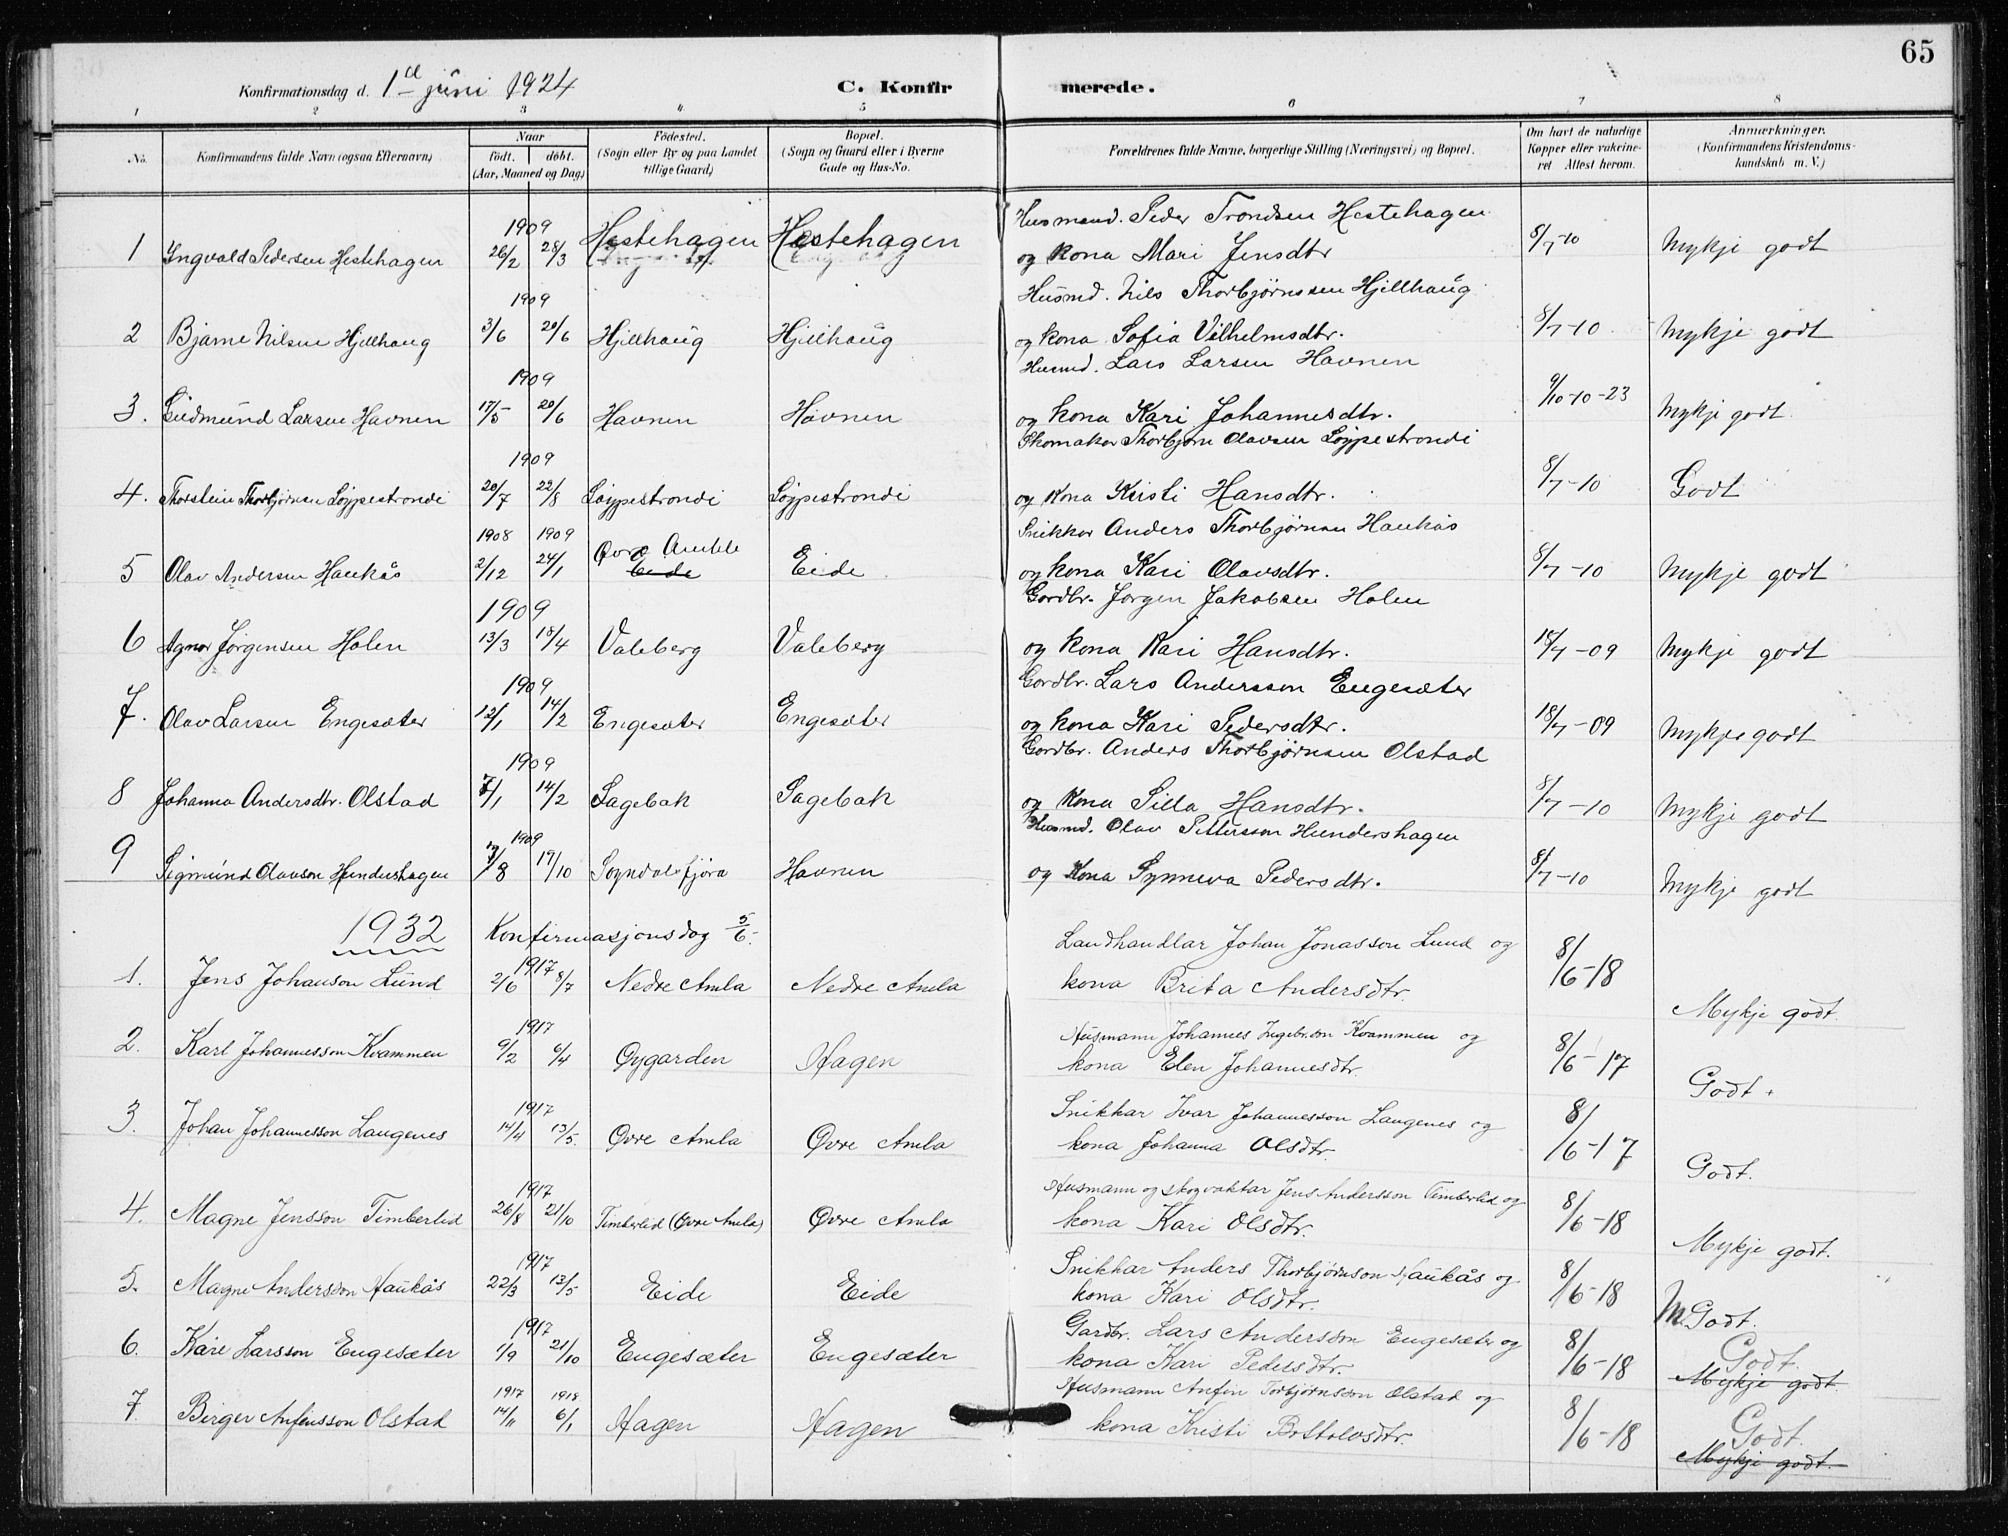 65
Konfirmationsdag d. 1ste juni 1924 C. Konfirmerede.
1 2 3 4 5 6 7 8
No. Konfirmandens fulde Navn (ogsaa Efternavn) Naar født. døbt. (Aar, Maaned og Dag) Fødested. (Sogn eller By og paa Landet tillige Gaard) Bopæl. (Sogn og Gaard eller i Byerne Gade og Hus-No. Forældrenes fulde Navne, borgerlige Stilling (Næringsvei) og Bopæl. Om havt de naturlige Kopper eller vakcineret Attest herom. Anmærkninger. (Konfirmandens Kristendomskundskab m. V.)
1909 Husmand. Peder Trondsen Hestehagen
1 Ingvald Pedersen Hestehagen 26/2 28/3 Hestehagen Hestehagen og kona Mari Jensdtr 8/7-10 Mykje godt
1909 Husmd. Nils Thorbjørnssen Hjellhaug
2 Bjarne Nilsen Hjellhaug 3/6 20/6 Hjellhaug Hjellhaug og kona Sofia Vilhelmsdtr. 8/7-10 Mykje godt
1909 Husmd. Lars Larsen Havnen
3. Gudmund Larsen Havnen 17/5 20/6 Havnen Havnen og kona Kari Johannesdtr. 9/10-10-23 Mykje godt
1909 Skomakar Thorbjørn Olavsen Løypestrondi
4. Thorstein Thorbjørnsen Løypestrondi 20/7 22/8 Løypestrondi Løypestrondi og Kona Kristi Hansdtr. 8/7-10 Godt
1908 1909 Snikkar Anders Thorbjørnsen Haukås
5 Olav Andersen Haukås 2/12 24/1 Øvre Amble Eide Eide og kona Kari Olavsdtr. 8/7-10 Mykje godt
1909 Gardbr. Jørgen Jakobsen Holen
6 Agnar Jørgensen Holen 13/3 18/4 Valeberg Valeberg og kona Kari Hansdtr. 18/7-09 Mykje godt
1909 Gardbr. Lars Andersson Engesæter
7. Olav Larsen Engesæter 12/1 14/2 Engesæter Engesæter og kona Kari Pedersdtr. 18/7-09 Mykje godt
1909 Gardbr. Anders Thorbjørnsen Olstad
8 Johanna Andersdtr. Olstad 7/1 14/2 Sagebak Sagebak og Kona Silla Hansdtr. 8/7-10 Mykje godt
1909 Husmd. Olav Pettersson Hundershagen
9 Sigmund Olavson Hundershagen 7/8 17/10 Sogndalsfjøra Havnen og Kona Synneva Pedersdtr. 8/7-10 Mykje godt
1932 Konfirmasjonsdag 5/6.
1917 Landhandlar Johan Jonasson Lund og
1. Jens Johanson Lund 2/6 8/7 Nedre Amla Nedre Amla kona Brita Andersdtr. 8/6-18 Mykje godt.
1917 Husmann Johannes Ingebr.son Kvammen og
2. Karl Johannesson Kvammen 9/2 6/4 Øygarden Hagen kona Elen Johannesdtr. 8/6-17 Godt.
1917 Snikkar Ivar Johannesson Laugenes og
3. Johan Johannesson Laugenes 14/4 13/5. Øvre Amla Øvre Amla kona Johanna Olsdtr. 8/6-17 Godt.
1917 Husmann og skogvaktar Jens Andersson Timberlid og
4. Magne Jensson Timberlid 26/8 21/10 Timberlid (Øvre Amla) Øvre Amla kona Kari Olsdtr. 8/6-18 Mykje godt.
1917 Snikkar Anders Thorbjørnson Haukås og
5. Magne Andersson Haukås 22/3 13/5 Eide Eide kona Kari Olsdtr. 8/6-18 M Godt.
1917 Gardbr. Lars Andersson Engesæter og
6. Kåre Larsson Engesæter 1/9 21/10 Engesæter Engesæter kona Kari Pedersdtr. 8/6-18 Godt. Mykje godt.
1917 1918 Husmann Anfin Torbjørnsson Olstad og
7. Birger Anfinsson Olstad 14/11 6/1 Hagen Hagen kona Kristi Botolvsdtr. 8/6-18 Godt. Mykje godt.